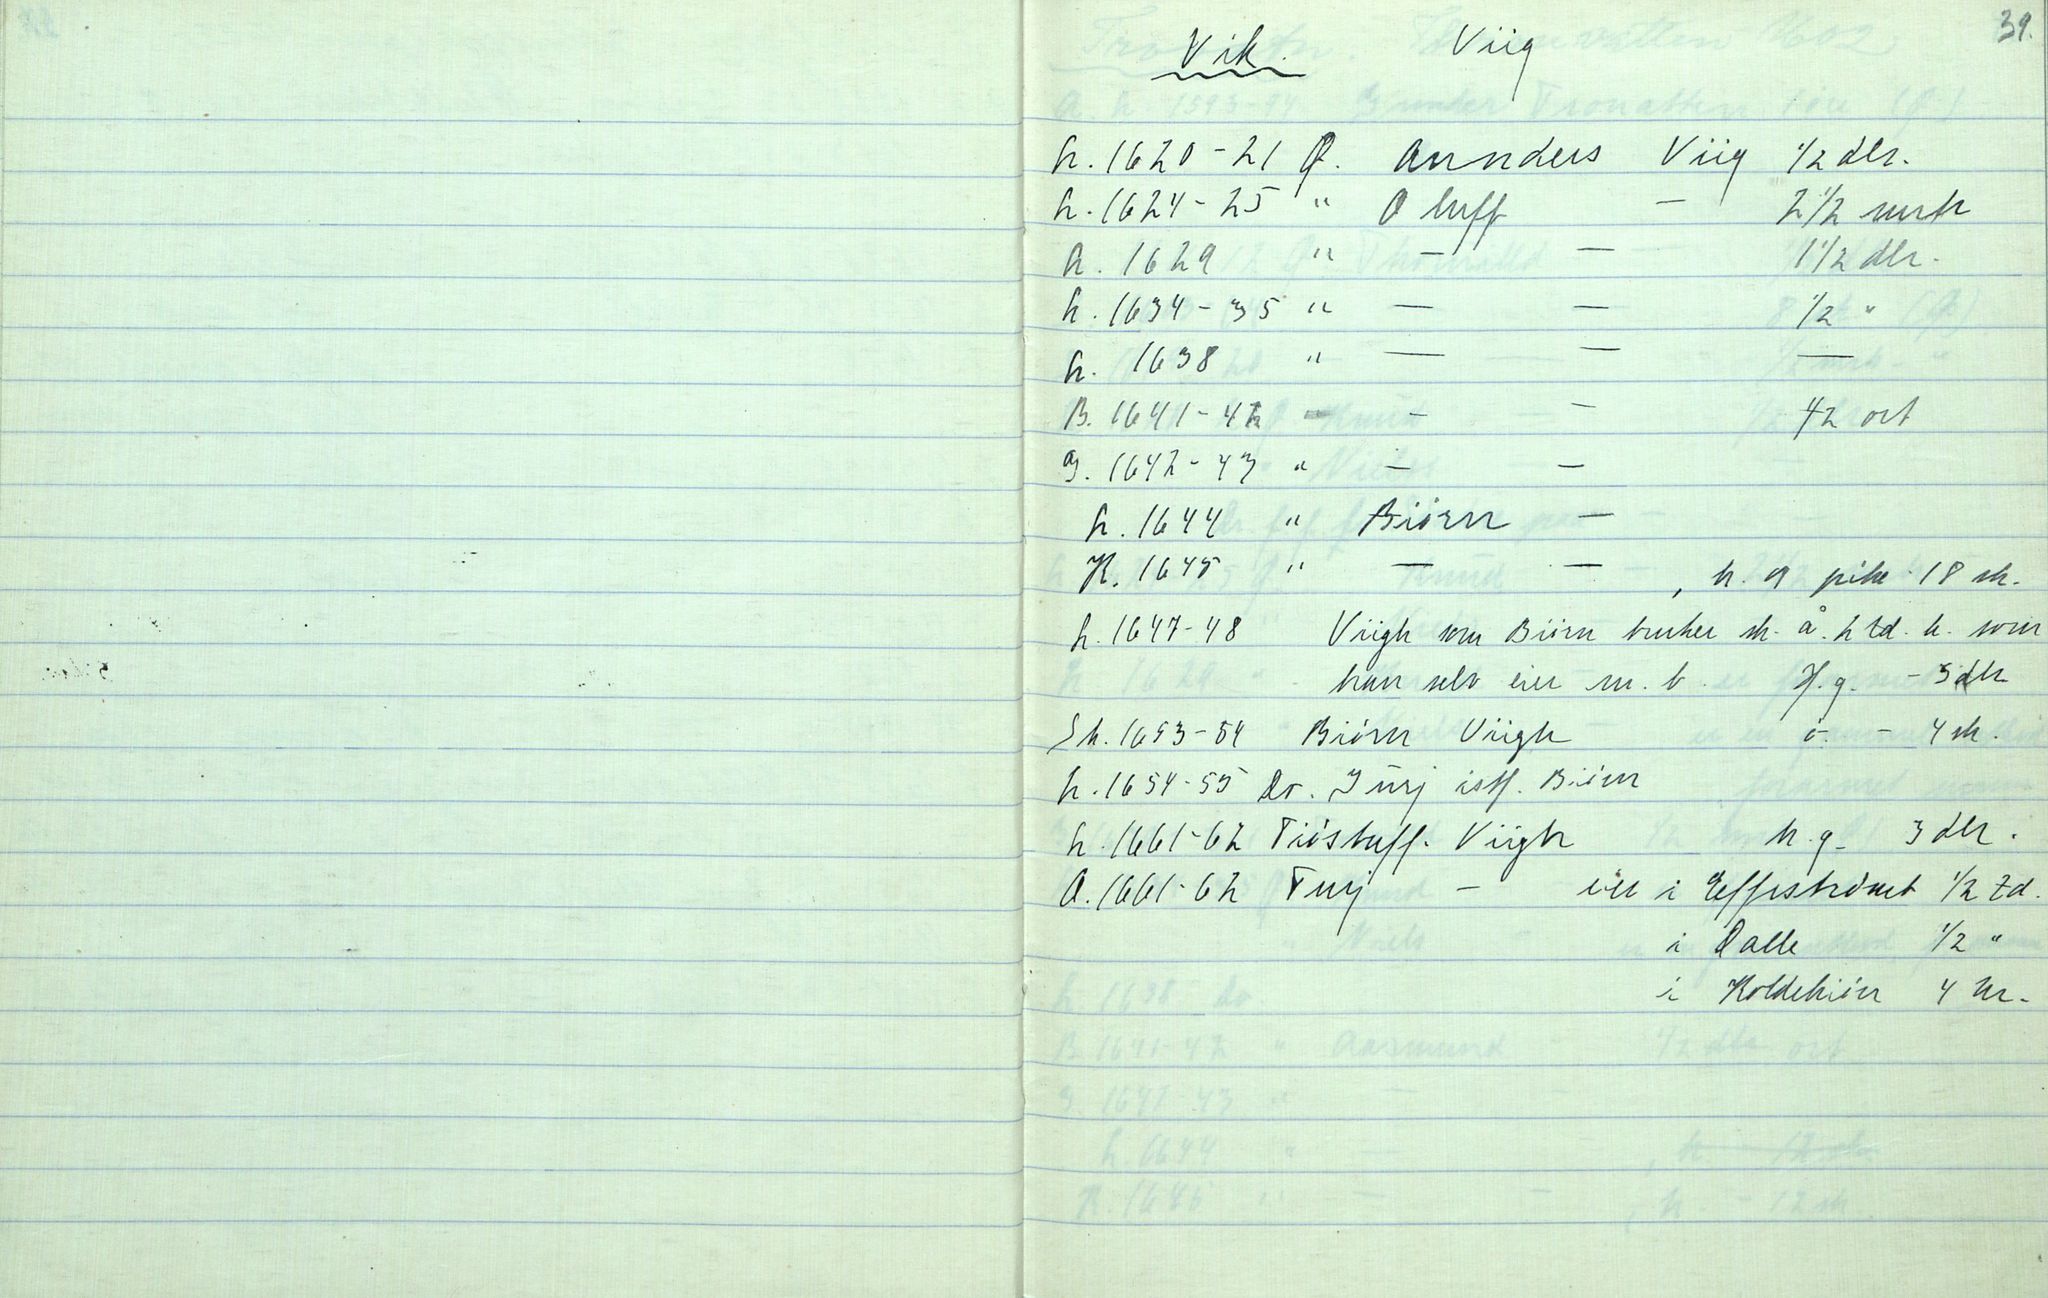 39.
Vik. Viig
h. 1620-21 Ø. Annders Viig 1/2 dlr.
h. 1624-25 " Oluff — 2 1/2 mrk
h. 1629 " — — 1 1/2 dlr.
h. 1634-35 " — — 1/2 "
h. 1638 " — — —
B. 1641-42 " — — 1/2 ort
G. 1642-43 " — —
h. 1644 " Biørn —
K. 1645 " — — , k. og pike 18 sk.
h. 1647-48 Viigh som Biørn bruker sk. å. h td. k. som
han selv eier m. b. H.g. - 3 dlr
Sk. 1653-54 Biørn Viigh ö. - 4 sk.
h. 1654-55 Do. Turj istf. Biörn
h. 1661-62 Tiöstuff. Viigh h.g. 3 dlr.
A. 1661-62 Turj — eier i Effieströmet 1/2 td.
i Dalle 1/2 "
i Koldekiörr 4 kr.